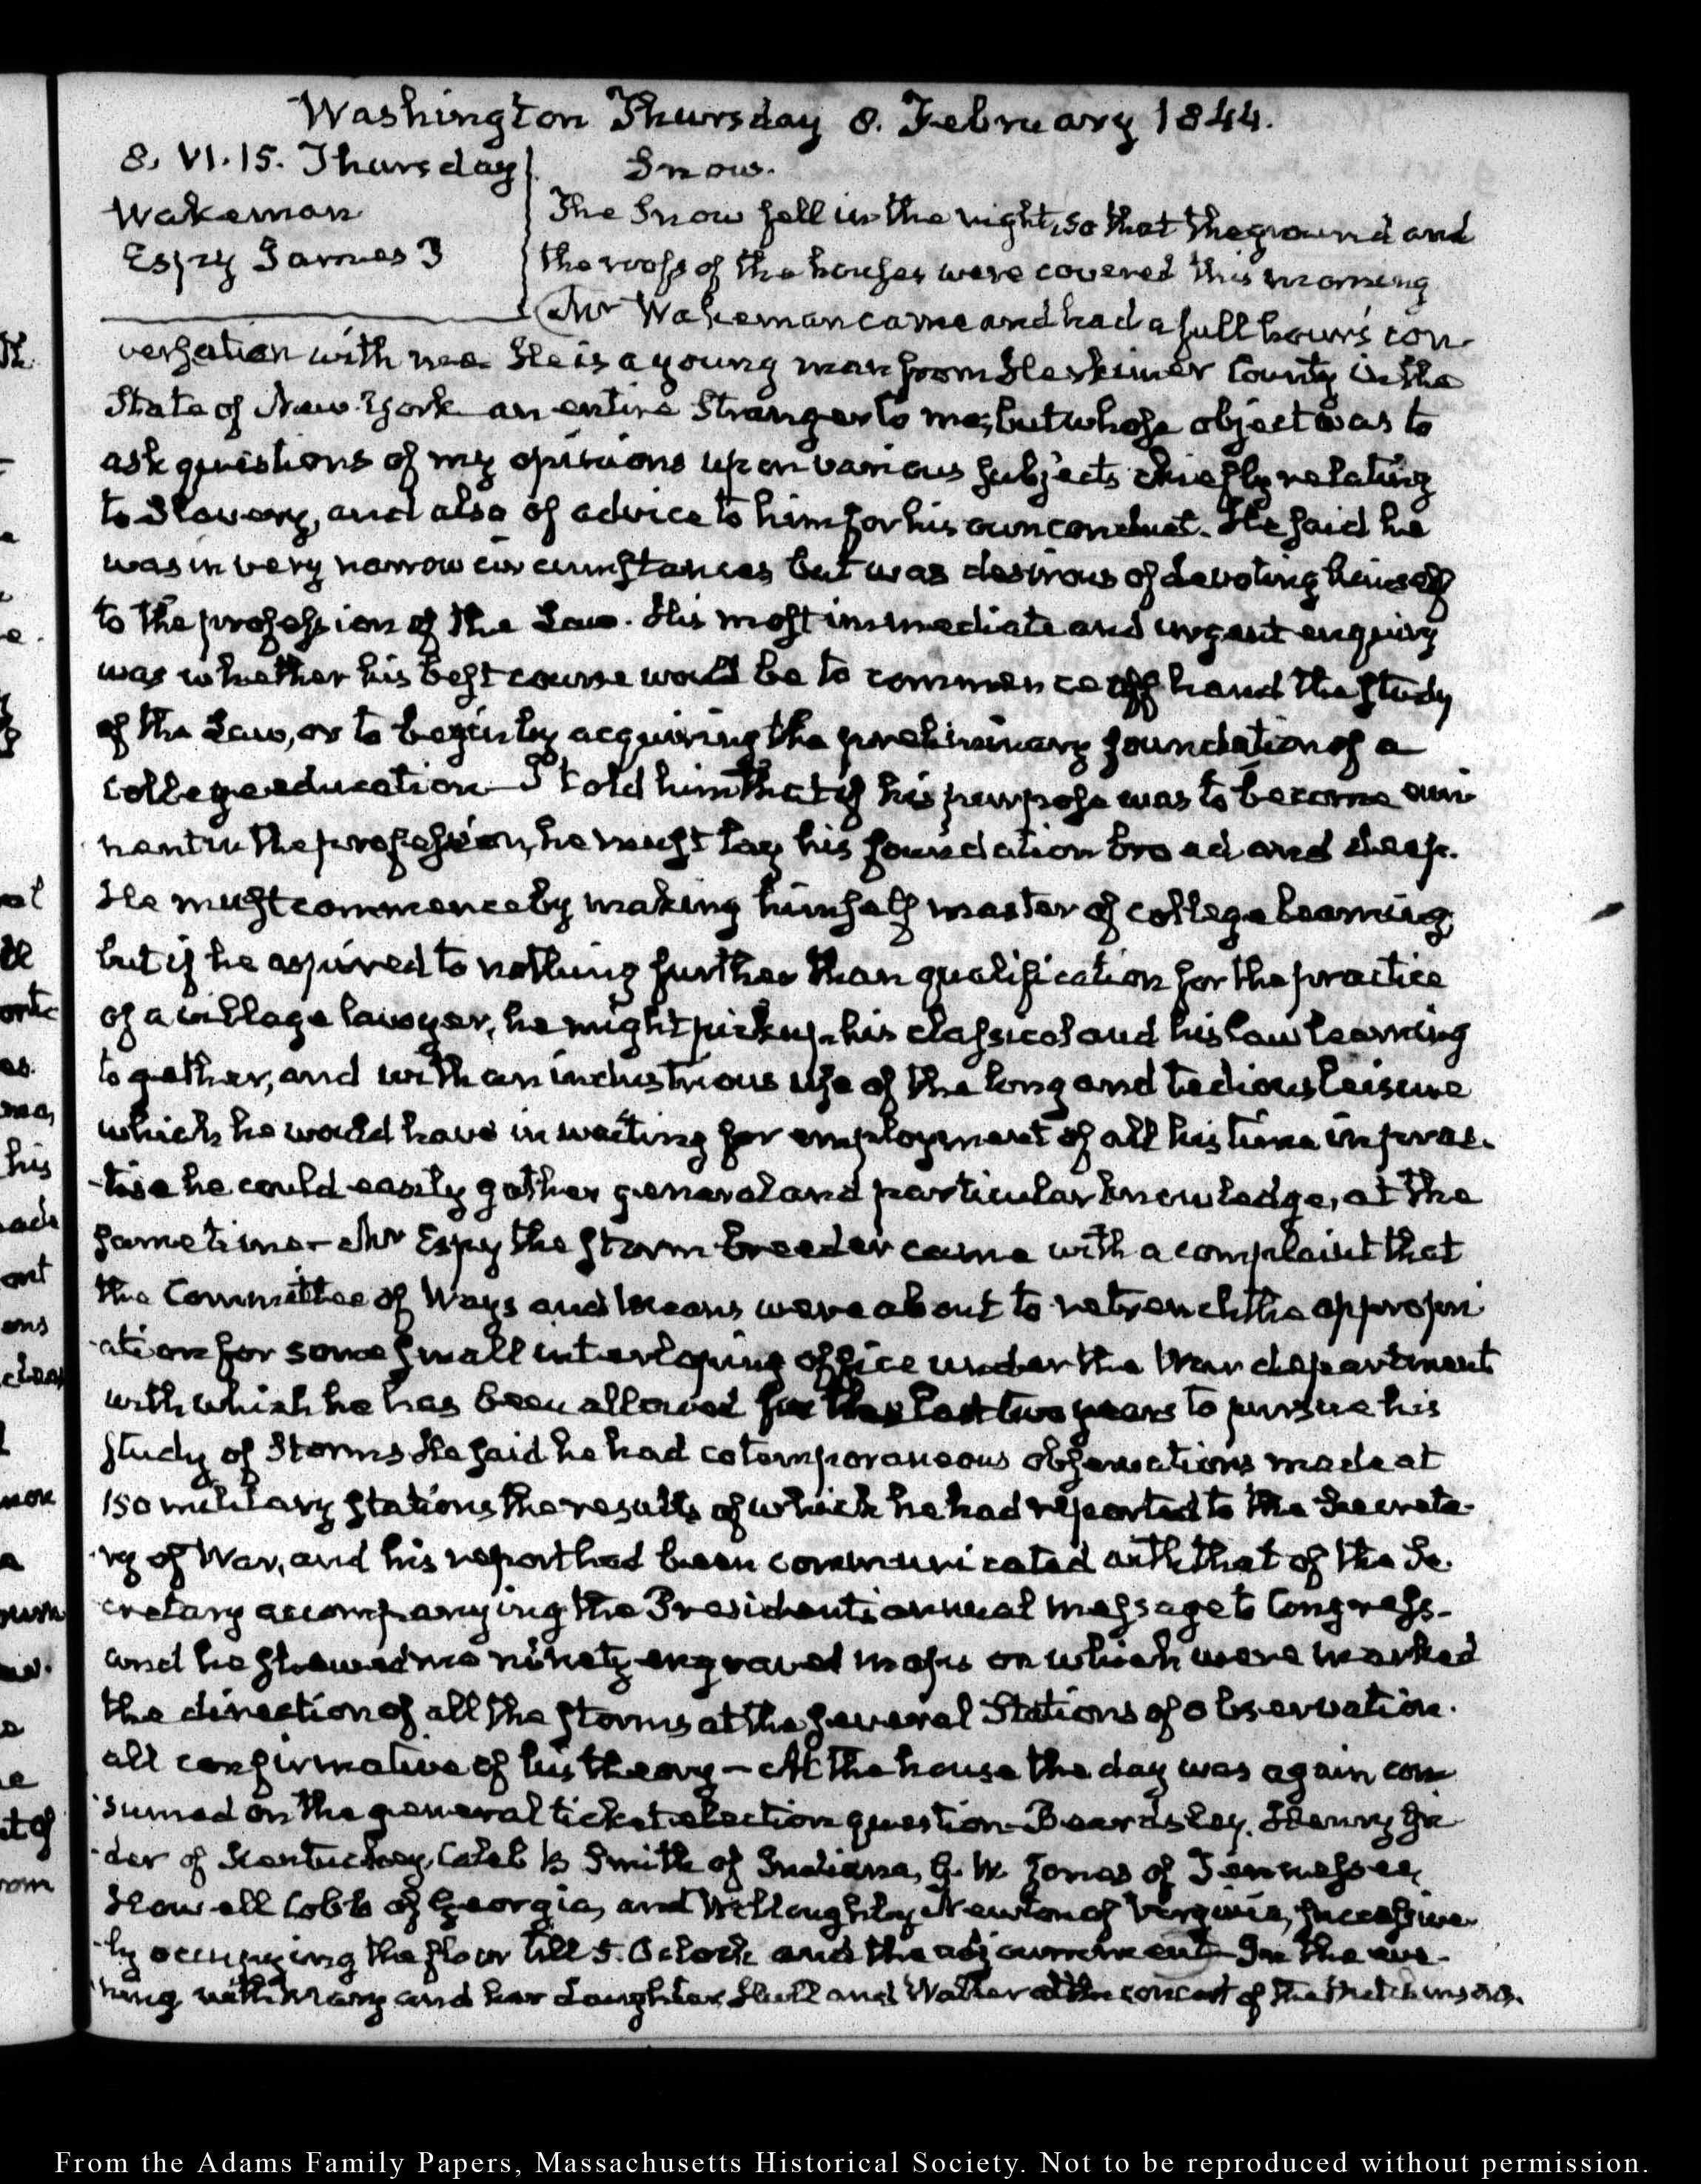 Washington Thursday 8. February 1844.
8. VI.15. Thursday
Wakeman
Espy James P
Snow.
The Snow fell in the night, so that the ground and
the roofs of the houses were covered this morning
Mr Wakeman came and had a full hour's con-
versation with me. He is a young man from Herkimer County in the
State of New-York an entire Stranger to me; but whose object was to
ask questions of my opinions upon various subjects chiefly relating
to Slavery, and also of advice to him for his own conduct. He said he
was in very narrow circumstances but was desirous of devoting himself
to the profession of the Law. His most immediate and urgent enquiry
was whether his best course would be to commence off hand the study
of the Law, or to begin by acquiring the preliminary foundation of a
college education—I told him that if his purpose was to become emi-
nent in the profession, he must lay his foundation broad and deep.
He must commence by making himself master of college learning,
but if he aspired to nothing further than qualification for the practice
of a village lawyer, he might pick up his classical and his law learning
together, and with an industrious use of the long and tedious leisure
which he would have in waiting for employment of all his time in prac-
-tise he could easily gather general and particular knowledge, at the
same time—Mr Espy the storm-breeder came with a complaint that
the Committee of Ways and Means were about to retrench the appropri-
-ation for some small interloping office under the War department
with which he has been allowed for the last two years to pursue his
study of Storms He said he had cotemporaneous observations made at
150 military stations the results of which he had reported to the Secreta-
-ry of War, and his report had been communicated with that of the Se-
cretary accompanying the President's annual message to Congress-
and he shewed me ninety engraved maps on which were marked
the direction of all the storms at the several Stations of observation.
all confirmative of his theory—At the house the day was again con-
-sumed on the general ticket election question—Beardsley, Henry Gri-
-der of Kentucky, Caleb B Smith of Indiana, G. W. Jones of Tennessee,
Howell Cobb of Georgia, and Willoughby Newton of Virginia, successive-
-ly occupying the floor till 5. O'clock and the adjournment—In the eve-
-ning with Mary and her daughter Hull and Walter at the concert of the Hutchinsons.